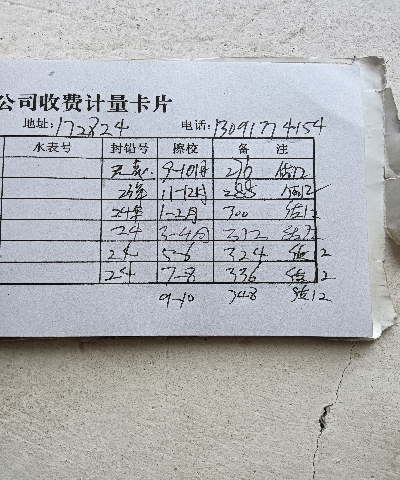 公司收费计量卡片
地址:172824 电话:13091774154
水表号 封铅号 擦校 备 注
9-10月 276 估12
23年 11-12月 288 估12
24年 1-2月 300 估12
24 3-4月 312 估12
24 5-6 324 估12
24 7-8 336 估12
9-10 348 估12